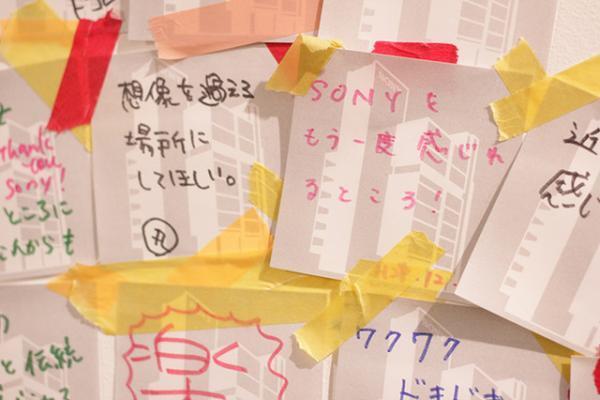 想像を過える
場所に
してほしい。
丸
SONYを
もう一度感じれ
るところ!
H29.12.
Thank
you
Sony!
ところに
これからも
近
感じ
と伝統
楽
ワクワク
ドキドキ